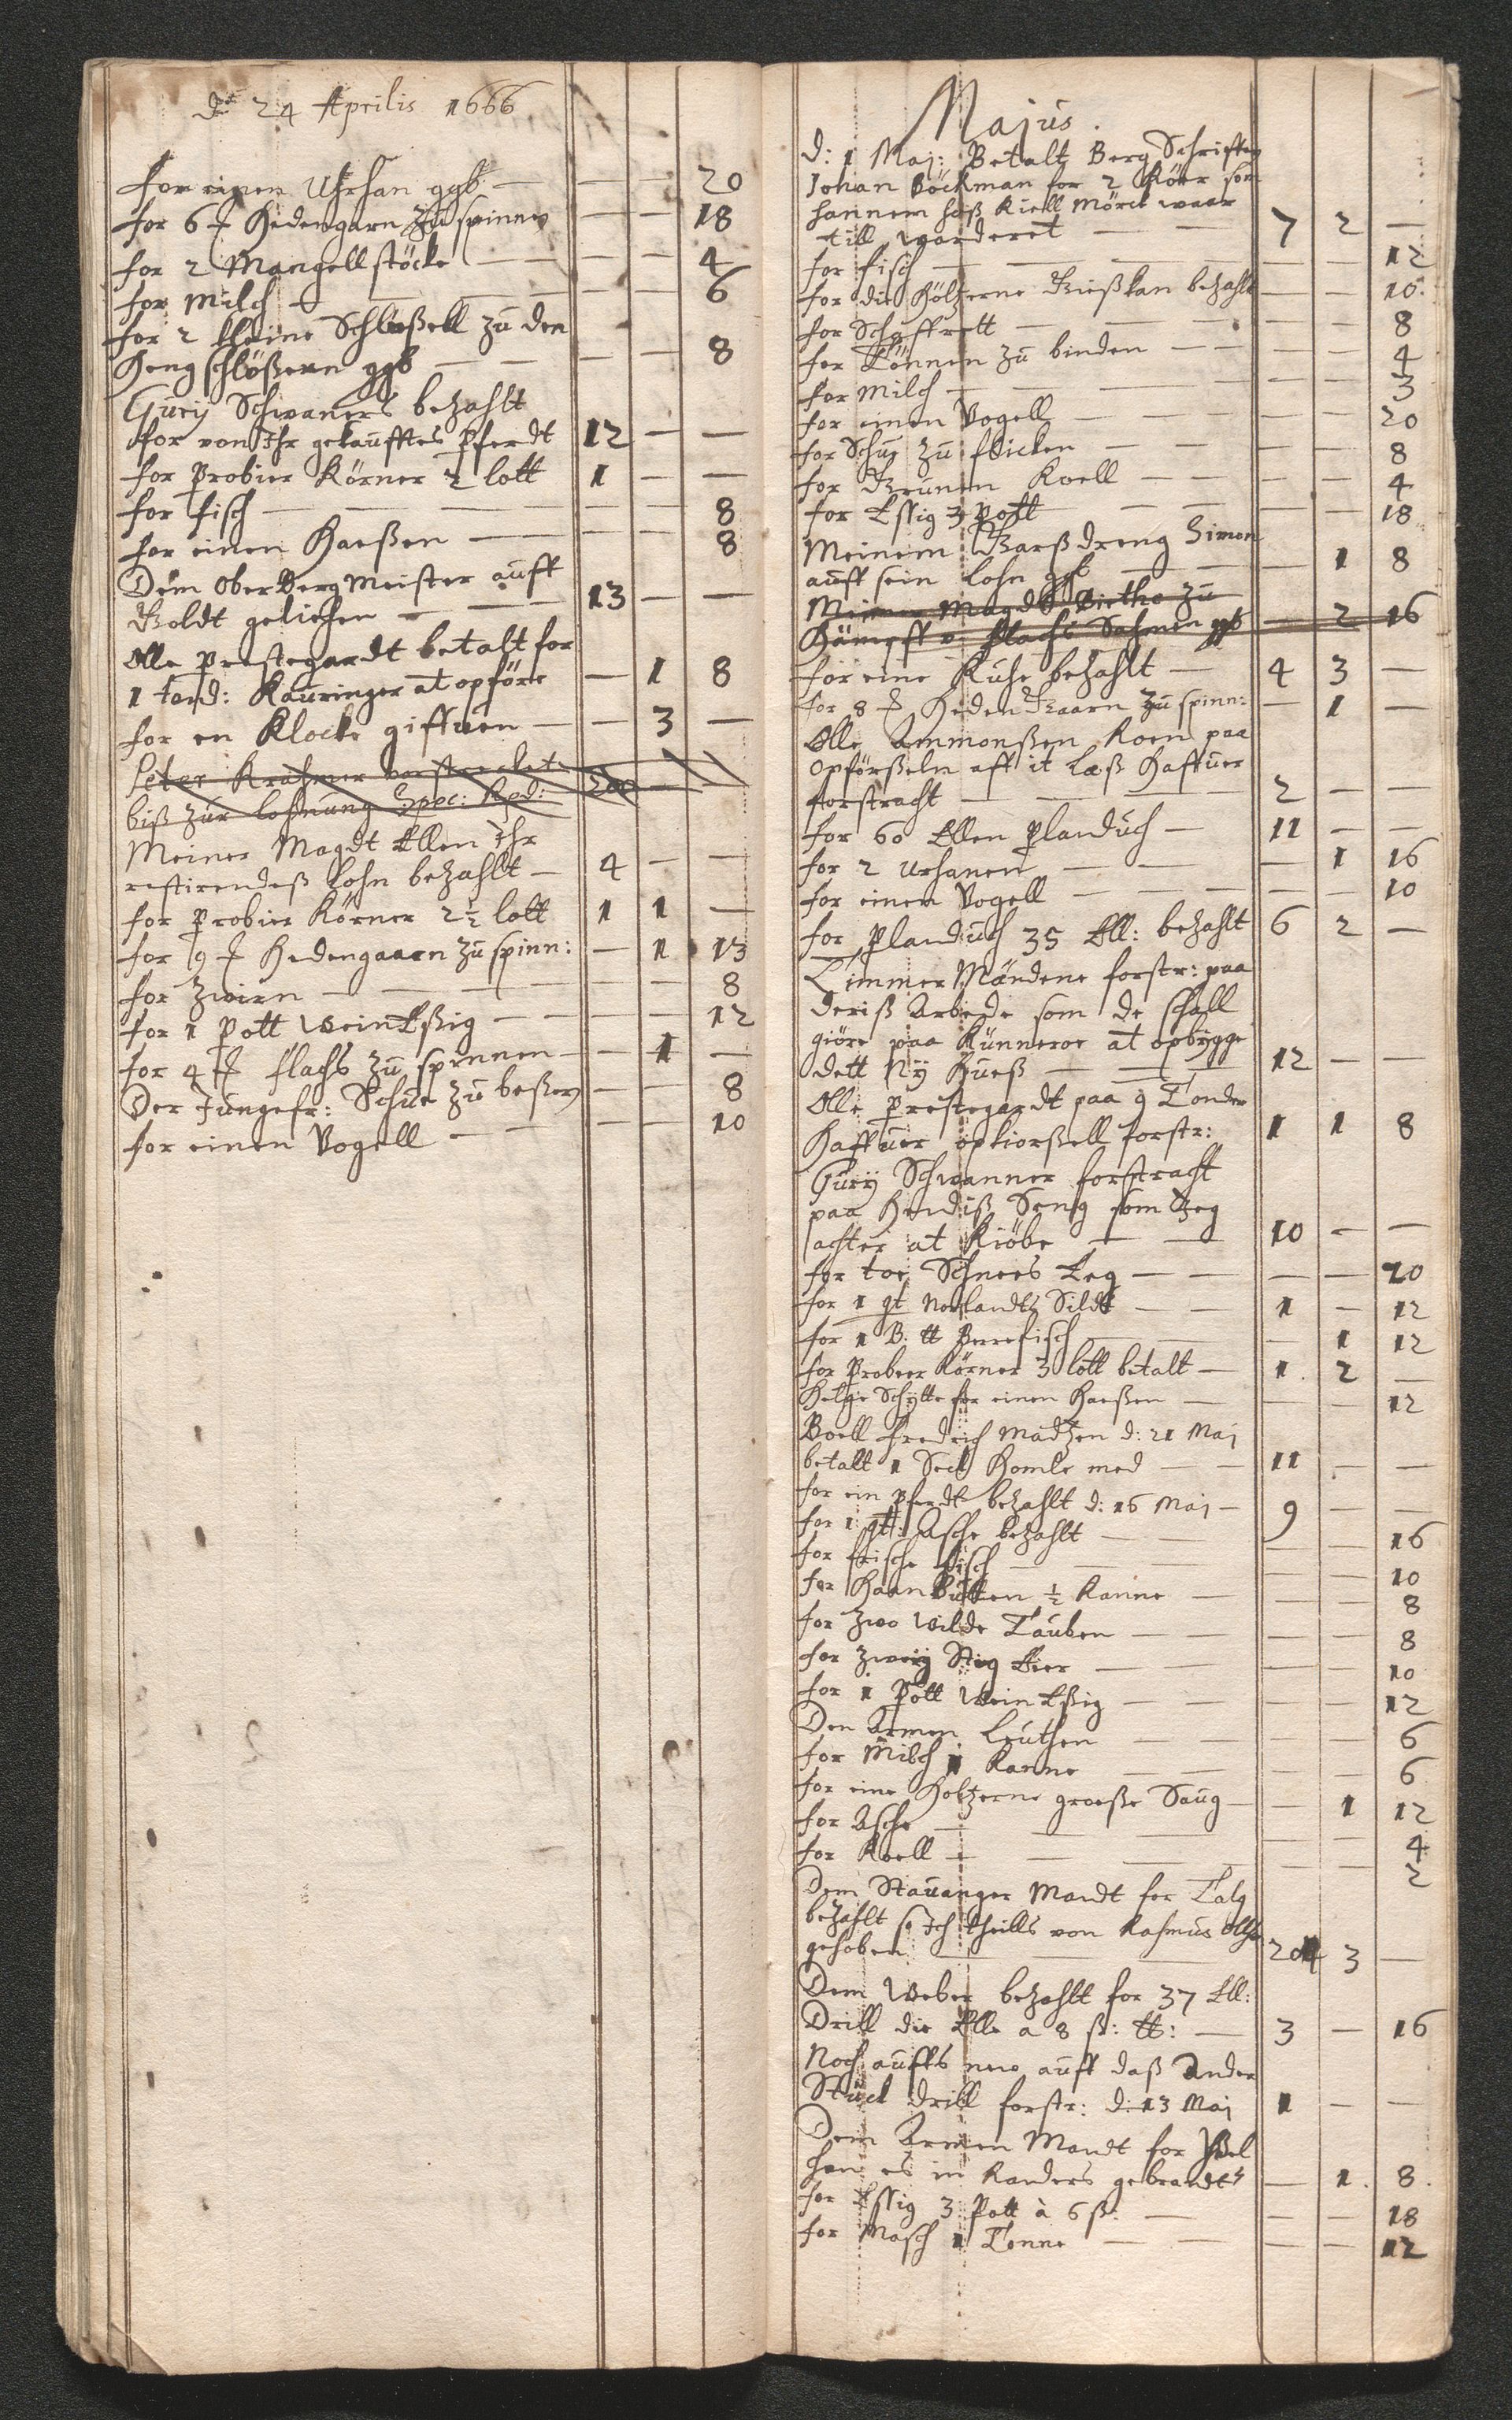 d: 24 Aprilis 1666
for einen Uhrhan ggb — — — 20
for 6 ℔ Hedengarn zu spinnen — — 18
for 2 Mangellstöcke — — — 4
for Milch — — — 6
for 2 kleine Schlüßell zu den
Hengschlößern ggb — — — 8
Gurij Schwaners bezahlt
for von Ihr gekaufftes Pferdt 12 — —
for Probier Körner 2 lott 1 — —
for fisch — — — 8
for einen Haeßen — — — 8
Dem Ober Berg Meister auff
Goldt geliehen — 13 — —
Olle Prestegardt betalt for
1 tend: Rauringer at opföre — 1 8
for en Klocke giffuen — — 3 —
Peter Krahmer vorstrecket
biß zur lohnung Spec: Rxd: 200 — —
Meiner Magdt Ellen Ihr
restirendeß lohn bezahlt — 4 — —
for Probier Körner 2½ lott 1 1 —
for 9 ℔ Hedengaarn zu spinn: — 1 13
for Zwirn — — — 8
for 1 Pott WeinEßig — — — 12
for 4 ℔ flachs zu spinnen — — 1 —
Der Jungefr: Schue zu beßern — — 8
for einen Vogell — — — 10
Majus.
d: 1 Maj: Betalt Berg Schrifter
Johan Böckman for 2 Köer som
hannem hoß Kiell Mörck waar
till worderet — — 7 2 —
for fisch — — — 12
for die Höltzerne Gießkan bezahlt — — 10
for Schaffrett — — — 8
for Tönnen zu binden — — — 4
for Milch — — — 3
for einen Vogell — — — 20
for Schue zu flicken — — — 8
for Grunen Koell — — — 4
for Essig 3 Pott — — — 18
Meinem Gaardreng Simon
auff sein lohn ggb — — 1 8
Meiner Magdt Birthe zu
Hämpff v: flachs Sahmen ggb — 2 16
for eine Kuhe bezahlt — 4 3 —
for 8 ℔ Heden Gaarn zu spinn: — 1 —
Olle Ammonßen Roen paa
Opförßeln aff it Læß Haffuer
forstracht — 2 — —
for 60 Ellen Planduch — 11 — —
for 2 Urhanen — — 1 16
for einen Vogell — — — 10
for Planduch 35 Ell: bezahlt 6 2 —
Timmer Mändene forstr: paa
deriß Arbede som de schall
giöre paa Künneroe at opbygge
dett Ny Hueß — — 12 — —
Olle Prestegardt paa 9 Tonder
Haffuer opkiorßell forstr: 1 1 8
Gurij Schwanner forstracht
paa Hendiß Seng som Jeg
achter at Kiöbe — — 10 — —
for toe Schnees Eeg — — — 20
for 1 qt Norlandts Sildt — — 1 — 12
for 1 B. ℔ Berrefisch — — 1 12
for Probeer Körner 3 lott betalt — 1 2 —
Helge Schytte for einen Haeßen — — — 12
Boell Fredrich Madtzen d: 21 Maj
betalt 1 Seck Homle med — — 11 — —
for ein Pferdt bezahlt d: 16 Maj — 9 — —
for 1 qt: Asche bezahlt — — — 16
for frische fisch — — — 10
for Haanbutten ½ Kanne — — — 8
for zwo Wilde Tauben — — — 8
for zweij Stieg Eier — — — 10
for 1 Pott Wein Eßig — — — 12
Den Armen Leuthen — — — 6
for Milch 1 Kanne — — — 6
for eine Holtzerne groeße Saug — — 1 12
for Asche — — — 4
for Koell — — — 2
Dem Stauanger Mandt for Talg
bezahlt so Ich theills von Rasmus Ollsen
gehoben — — 204 3 —
Dem Weber bezahlt for 37 Ell:
Drill die Elle a 8 ß: — 3 — 16
Noch auffs new auff daß Ander
Stück drill forstr: d: 13 Maj 1 — —
Dem Armen Mandt for
han es in Randers gebrandt — 1 8
for Essig 3 Pott à 6 ß — — — 18
for Masch 1 Tonne — — — 12